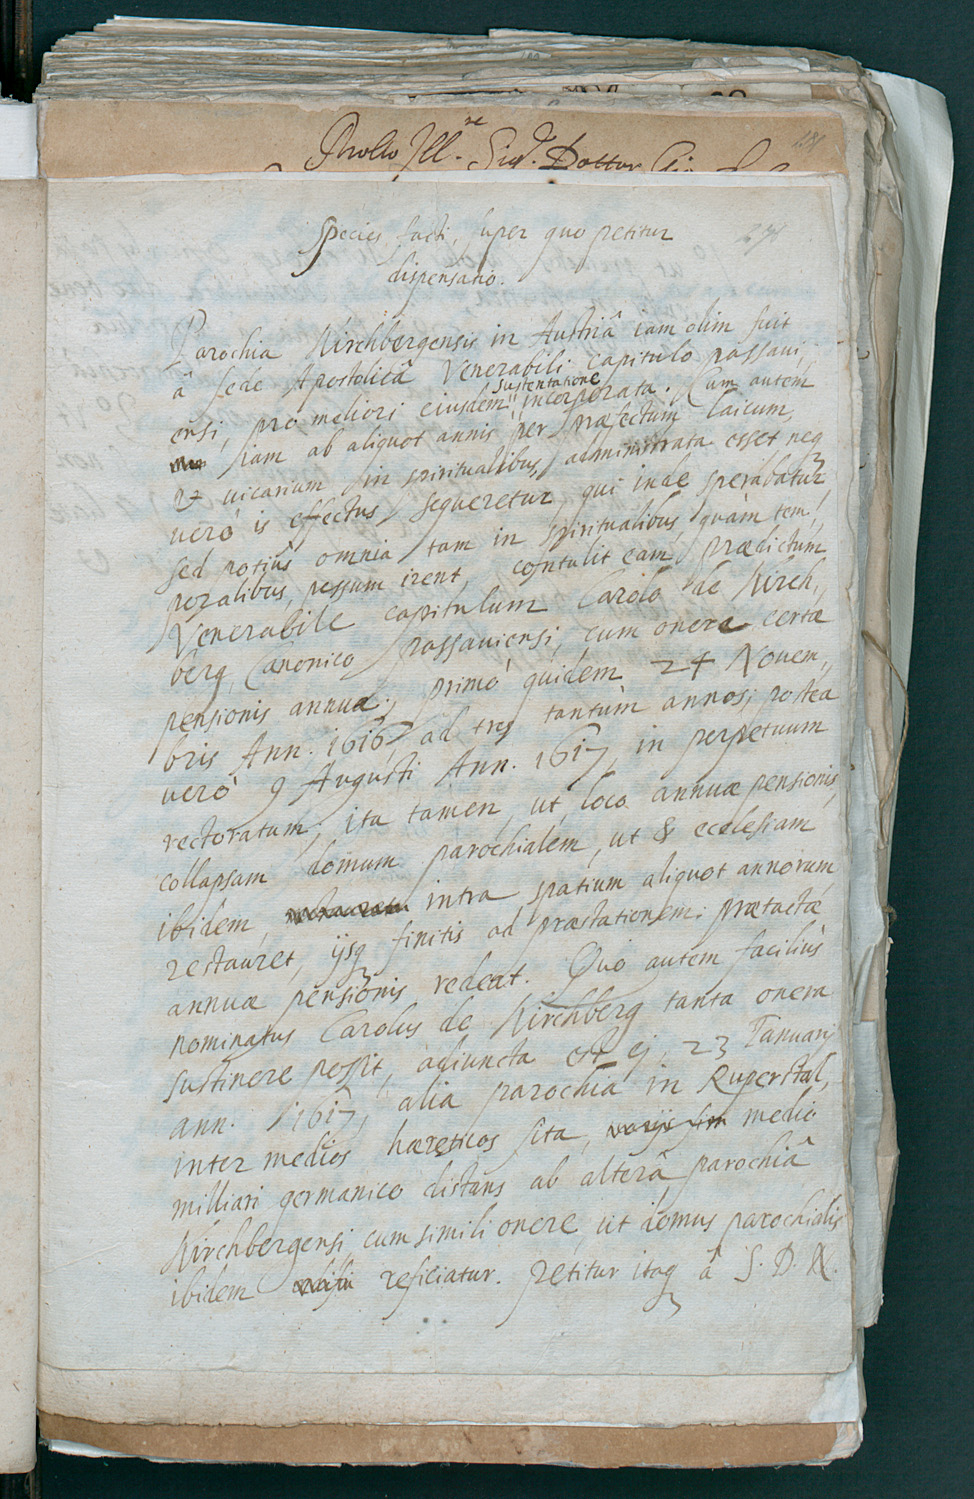 Molto Ill.re Sig.r Dottor
Species facti, super quo petitur
dispensatio.
Parochia Kirchbergensis in Austriâ iam olim fuit
â Sede Apostolicâ Venerabili capitulo passavi,,
ensi, pro meliori eiusdem sustentatione incorporata. Cum autem
iam ab aliquot annis per praefectum laicum,
& vicarium in spiritualibus administrata esset neq
vero is effectus sequeretur qui inde sperabatur,
sed potiùs omnia tam in spiritualibus quàm tem,,
poralibus, pessum irent, contulit eam praedictum
Venerabile capitulum Carolo de Kirch,,
berg, Canonico passaviensi, cum onere certae
pensionis annuae, primò quidem 24 Novem,,
bris Ann. 1616, ad tres tantùm annos; postea
verò 9 Augusti Ann. 1617, in perpetuum
rectoratum; ita tamen, ut loco annuae pensionis,
collapsam domum parochialem, ut & ecclesiam
ibidem, intra spatium aliquot annorum
restauret, ijsq finitis ad praestationem praetactae
annuae pensionis redeat. Quo autem faciliùs
nominatus Carolus de Kirchberg tanta onera
sustinere possit, adiuncta est ej, 23 Januarij
ann. 1617, alia parochia in Ruperstal,
inter medios haereticos sita, medio
milliari germanico distans ab alterâ parochiâ
Kirchbergensi, cum simili onere, ut domus parochialis
ibidem reficiatur. Petitur itaq â S. D. N.